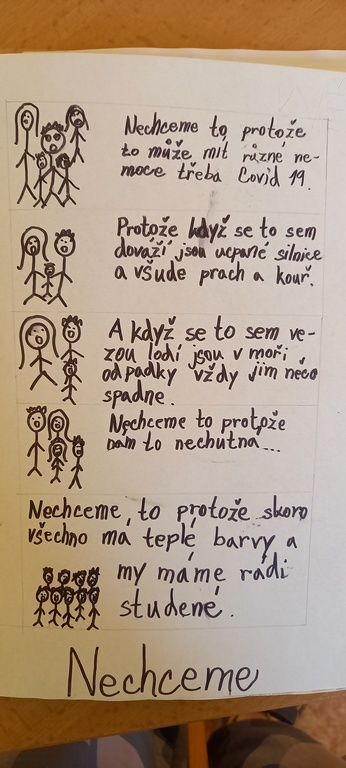 Nechceme to, protože
to může mít různé ne-
moce třeba Covid 19.
Protože když se to sem
dováží jsou ucpané silnice
a všude prach a kouř.
A když se to sem ve-
zou lodí jsou v moři
odpadky vždy jim něco
spadne.
Nechceme to protože
nám to nechutná...
Nechceme to protože skoro
všechno má teplé barvy a
my máme rádi
studené.
Nechceme